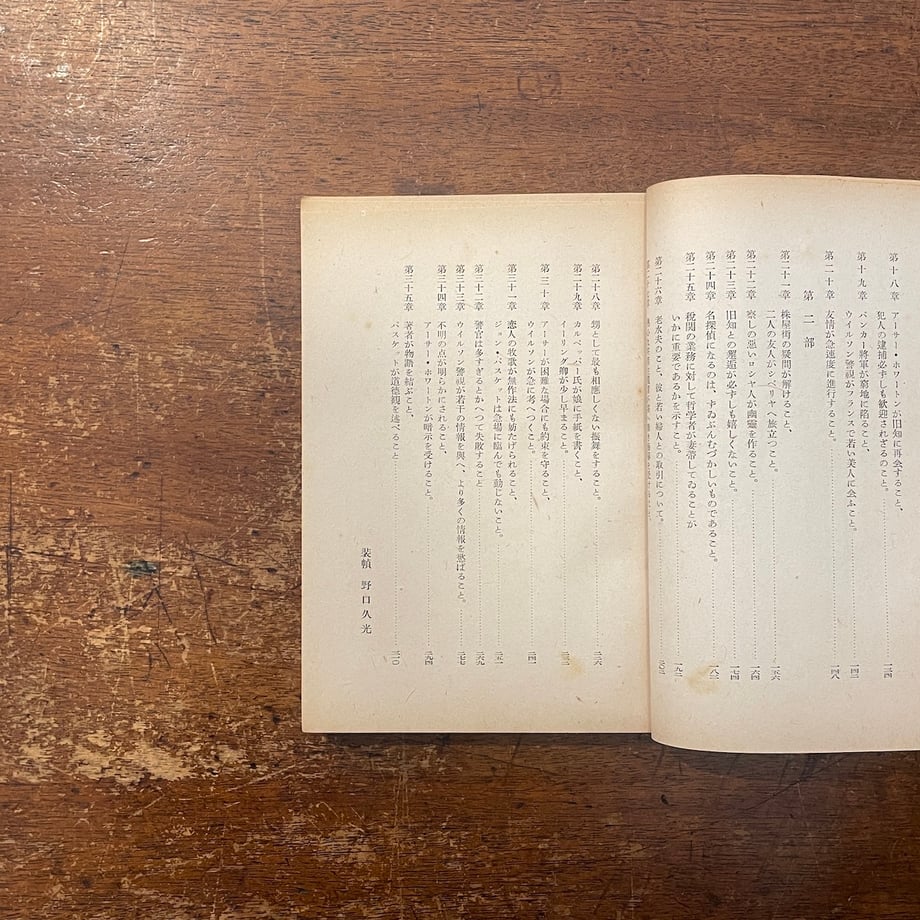 第十八章 アーサー・ホワートンが旧知に再会すること、
犯人の逮捕必ずしも歓迎されざるのこと。 一三四
第十九章 バンカー將軍が窮地に陥ること、
ウイルソン警視がフランスで若い美人に会ふこと。 一四二
第二十章 友情が急速度に進行すること。 一四八
第二部
第二十一章 株屋街の疑問が解けること、
二人の友人がシベリヤへ旅立つこと。 一五六
第二十二章 察しの悪いロシヤ人が幽靈を作ること。 一六四
第二十三章 旧知との邂逅が必ずしも嬉しくないこと。 一七四
第二十四章 名探偵になるのは、ずゐぶんむづかしいものであること。 一八二
第二十五章 税関の業務に対して哲学者が妻帯してゐることが、
いかに重要であるかを示すこと。 一九二
第二十六章 老水夫のこと、彼と若い婦人との取引について。 二〇二
第二十八章 甥として最も相應しくない振舞をすること。 二二六
第二十九章 カルペッパー氏が娘に手紙を書くこと、
イーリング卿が少し早まること。 二三二
第三十章 アーサーが困難な場合にも約束を守ること、
ウイルソンが急に考へつくこと。 二四一
第三十一章 恋人の牧歌が無作法にも妨げられること、
ジョン・バスケットは急場に臨んでも動じないこと。 二五一
第三十二章 警官は多すぎるとかへつて失敗すること 二六九
第三十三章 ウイルソン警視が若干の情報を與へ、より多くの情報を慾ばること。 二七七
第三十四章 不明の点が明らかにされること、
アーサー・ホワートンが暗示を受けること。 二九四
第三十五章 著者が物語を結ぶこと、
バスケットが道徳観を述べること 三一〇
装幀 野口久光